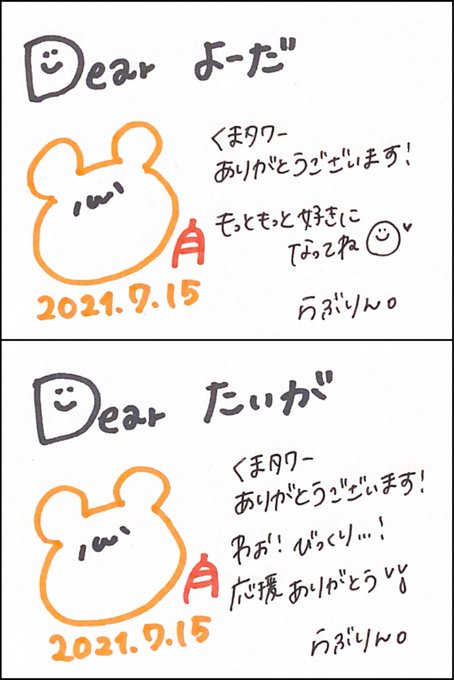 Dear よーだ
くまタワー
ありがとうございます!
もっともっと好きに
なってね
2021.7.15
らぶりん。
Dear たいが
くまタワー
ありがとうございます!
わお!びっくり…!
応援ありがとう
2021.7.15
らぶりん。